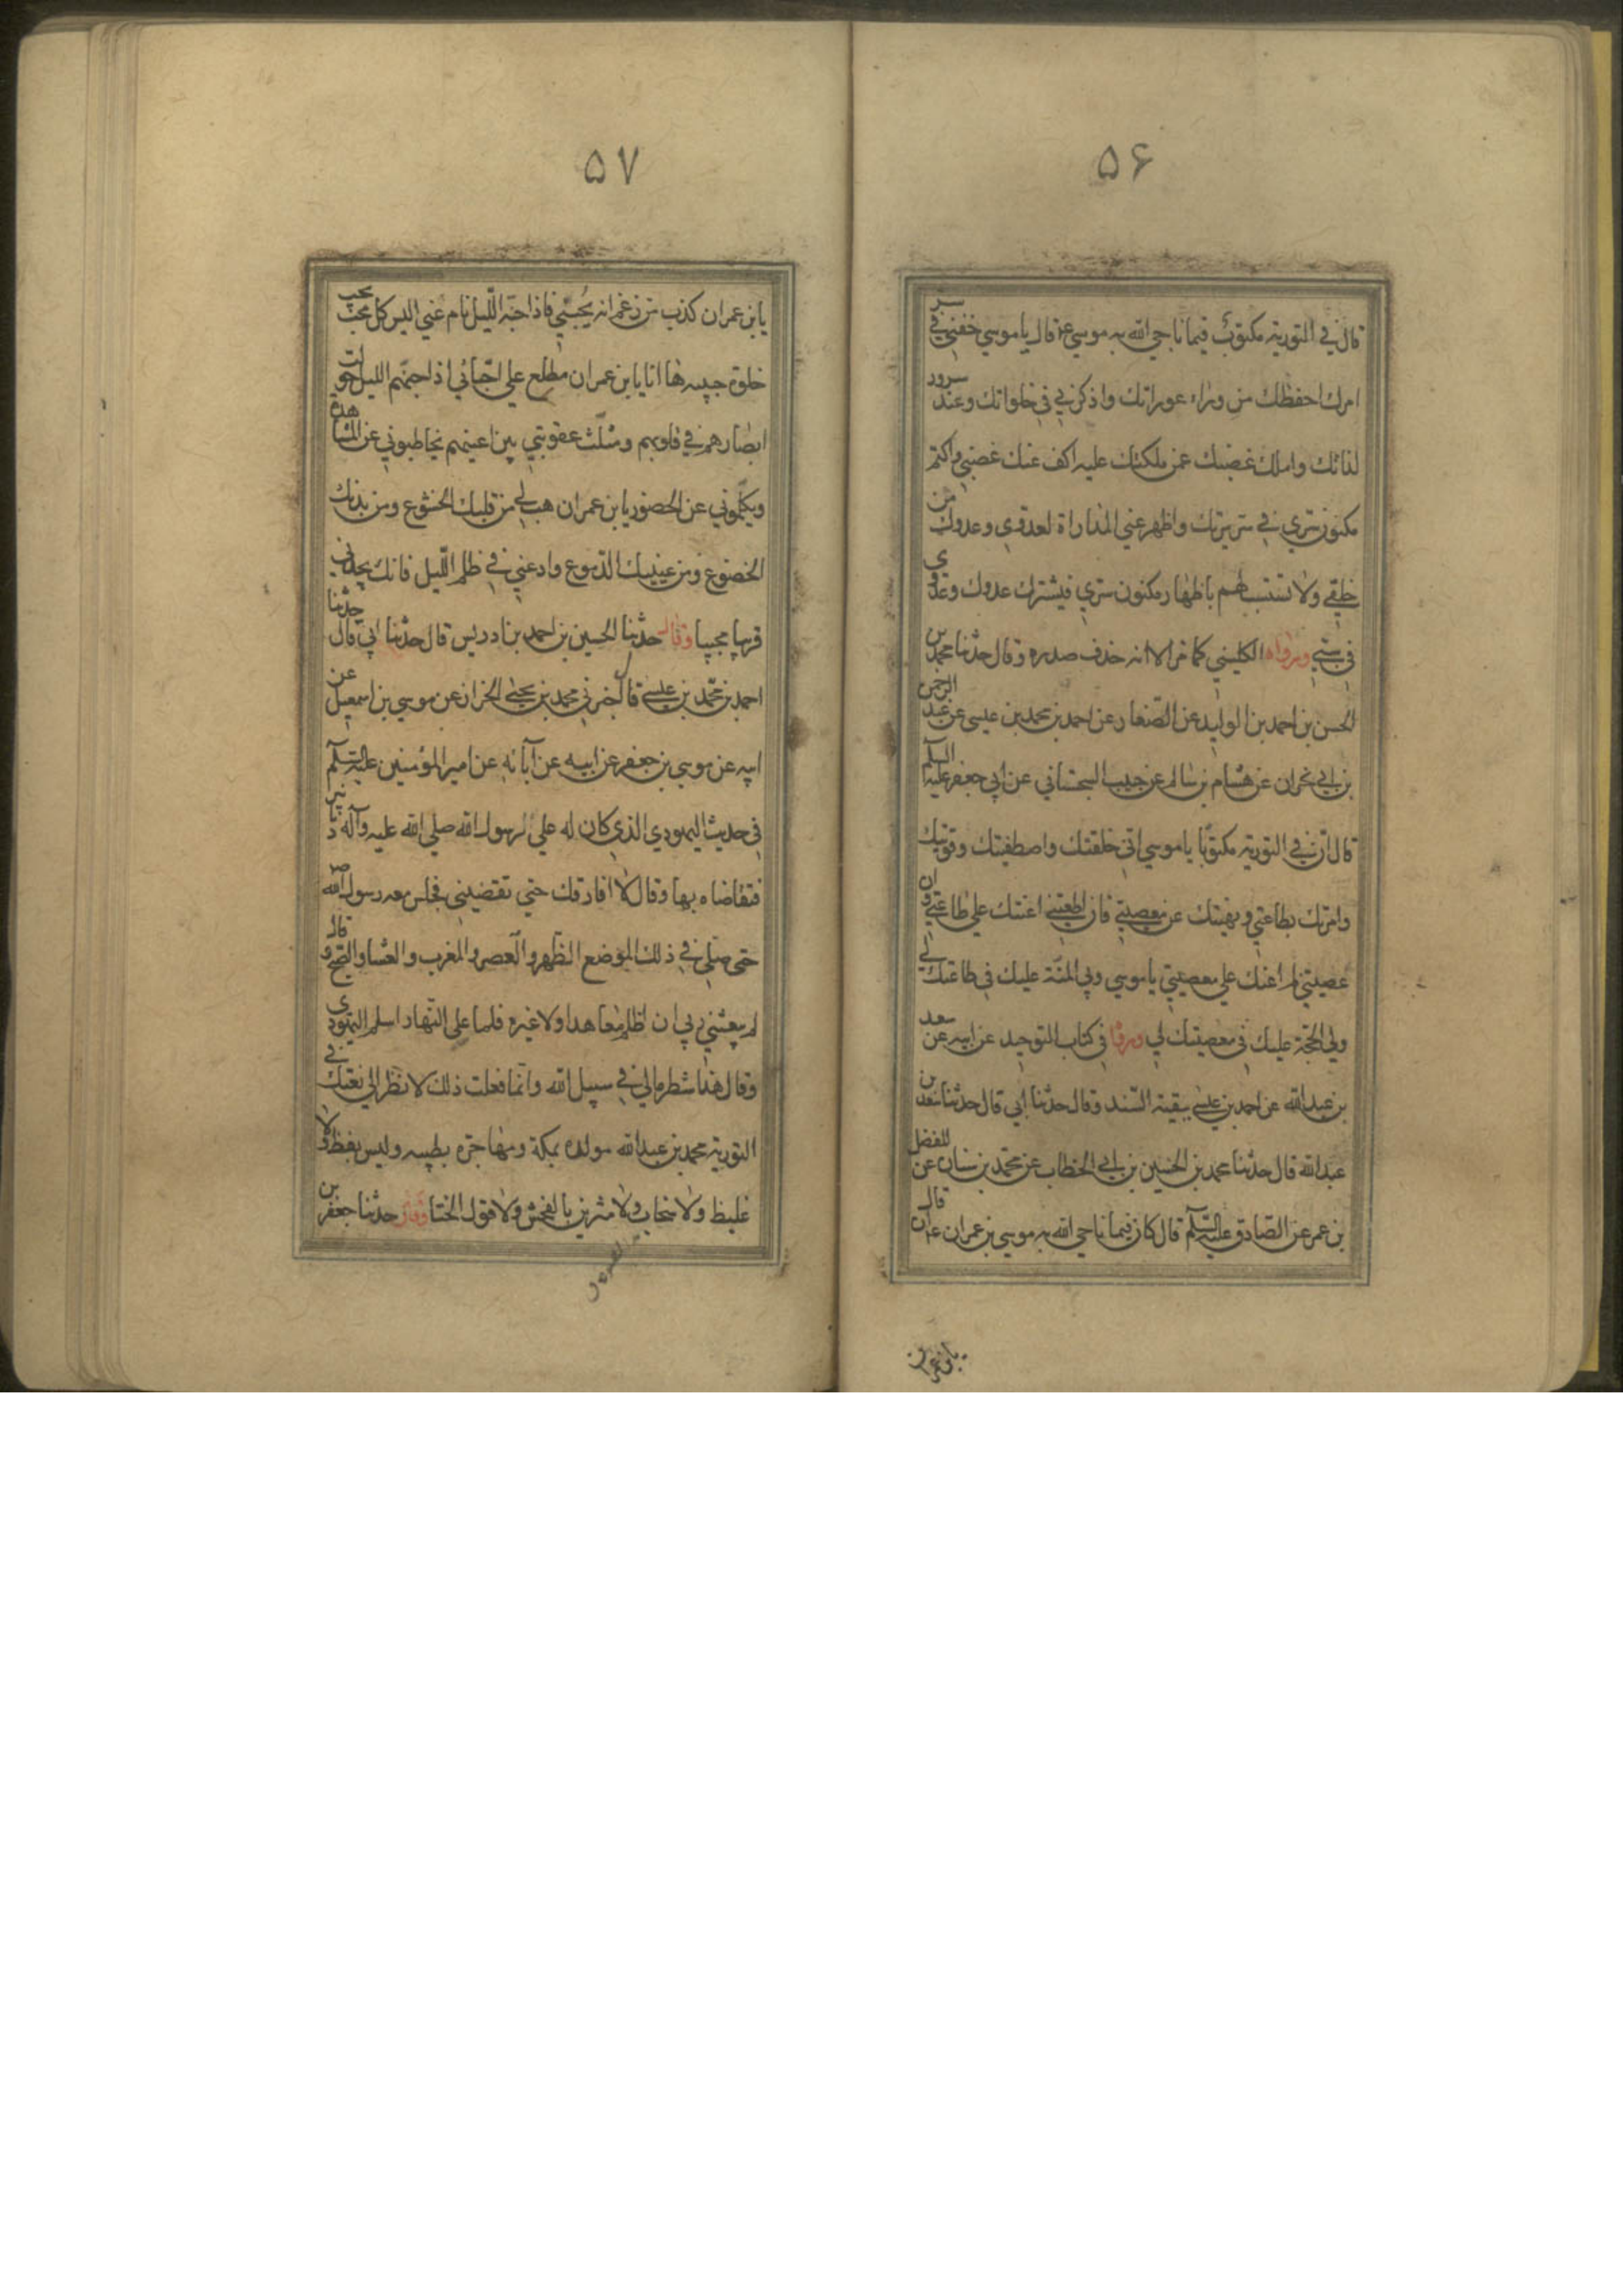 ۵۶
قال في التورية مكتوب فيما ناجي الله به موسي ع قال يا موسي خفني في سر
امرك احفظك من وراء عوراتك واذكرني في خلواتك وعند سرور
لذاتك واملك غضبك عمن ملكتك عليه اكف عنك غضبي واكتم
مكنون سري في سريرتك واظهر عني المداراة لعدوي وعدوك من
خلقي ولا تستسب لهم باظهار مكنون سري فيشترك عدوك وعدوي
في سبي ورواه الكليني كما مر الا انه حذف صدره وقال حدثنا محمد بن
الحسن بن احمد بن الوليد عن الصفار عن احمد بن محمد بن عيسي عن عبد الرحمن
بن ابي نجران عن هشام بن سالم عن حبيب السجستاني عن ابي جعفر عليه السلم
قال ان في التورية مكتوبا يا موسي اني خلقتك واصطفيتك وقويتك
وامرتك بطاعتي ونهيتك عن معصيتي فان اطعتني اعنتك علي طاعتي وان
عصيتني لم اعنك علي معصيتي يا موسي ولي المنة عليك في طاعتك لي
ولي الحجة عليك في معصيتك لي ورواه في كتاب التوحيد عن ابيه عن سعد
بن عبد الله عن احمد بن عيسي ببقية السند وقال حدثنا ابي قال حدثنا سعد بن
عبد الله قال حدثنا محمد بن الحسين بن ابي الخطاب عن محمد بن سنان عن المفضل
بن عمر عن الصادق عليه السلم قال كان فيما ناجي الله به موسي بن عمران ع ان قال
يابن عمران
۵۷
يا بن عمران كذب من زعم انه يحبني فاذا جنه الليل نام عني اليس كل محب يحب
خلوة حبيبه ها انا يا بن عمران مطلع علي احبائي اذا جنهم الليل حولت
ابصارهم في قلوبهم ومثلت عقوبتي بين اعينهم يخاطبوني عن المشاهدة
ويكلموني عن الحضور يا بن عمران هب لي من قلبك الخشوع ومن بدنك
الخضوع ومن عينيك الدموع وادعني في ظلم الليل فانك تجدني
قريبا مجيبا وقال حدثنا الحسين بن احمد بن ادريس قال حدثنا ابي قال حدثنا
احمد بن محمد بن عيسي قال اخبرني محمد بن يحيي الخزاز عن موسي بن اسمعيل عن
ابيه عن موسي بن جعفر عن ابيه عن آبائه عن امير المؤمنين عليه السلم
في حديث اليهودي الذي كان له علي رسول الله صلي الله عليه وآله دنانير
فتقاضاه بها وقال لا افارقك حتي تقضيني فجلس معه رسول الله ص
حتي صلي في ذلك الموضع الظهر والعصر والمغرب والعشا والصبح وقال
لم يبعثني ربي ان اظلم معاهدا ولا غيره فلما علي النهار اسلم اليهودي
وقال هذا شطر مالي في سبيل الله وانما فعلت ذلك لانظر الي نعتك في
التورية محمد بن عبد الله مولده بمكة ومهاجره بطيبه وليس بفظ ولا
غليظ ولا سخاب ولا متزين بالفحش ولا قول الخنا وقال حدثنا جعفر بن